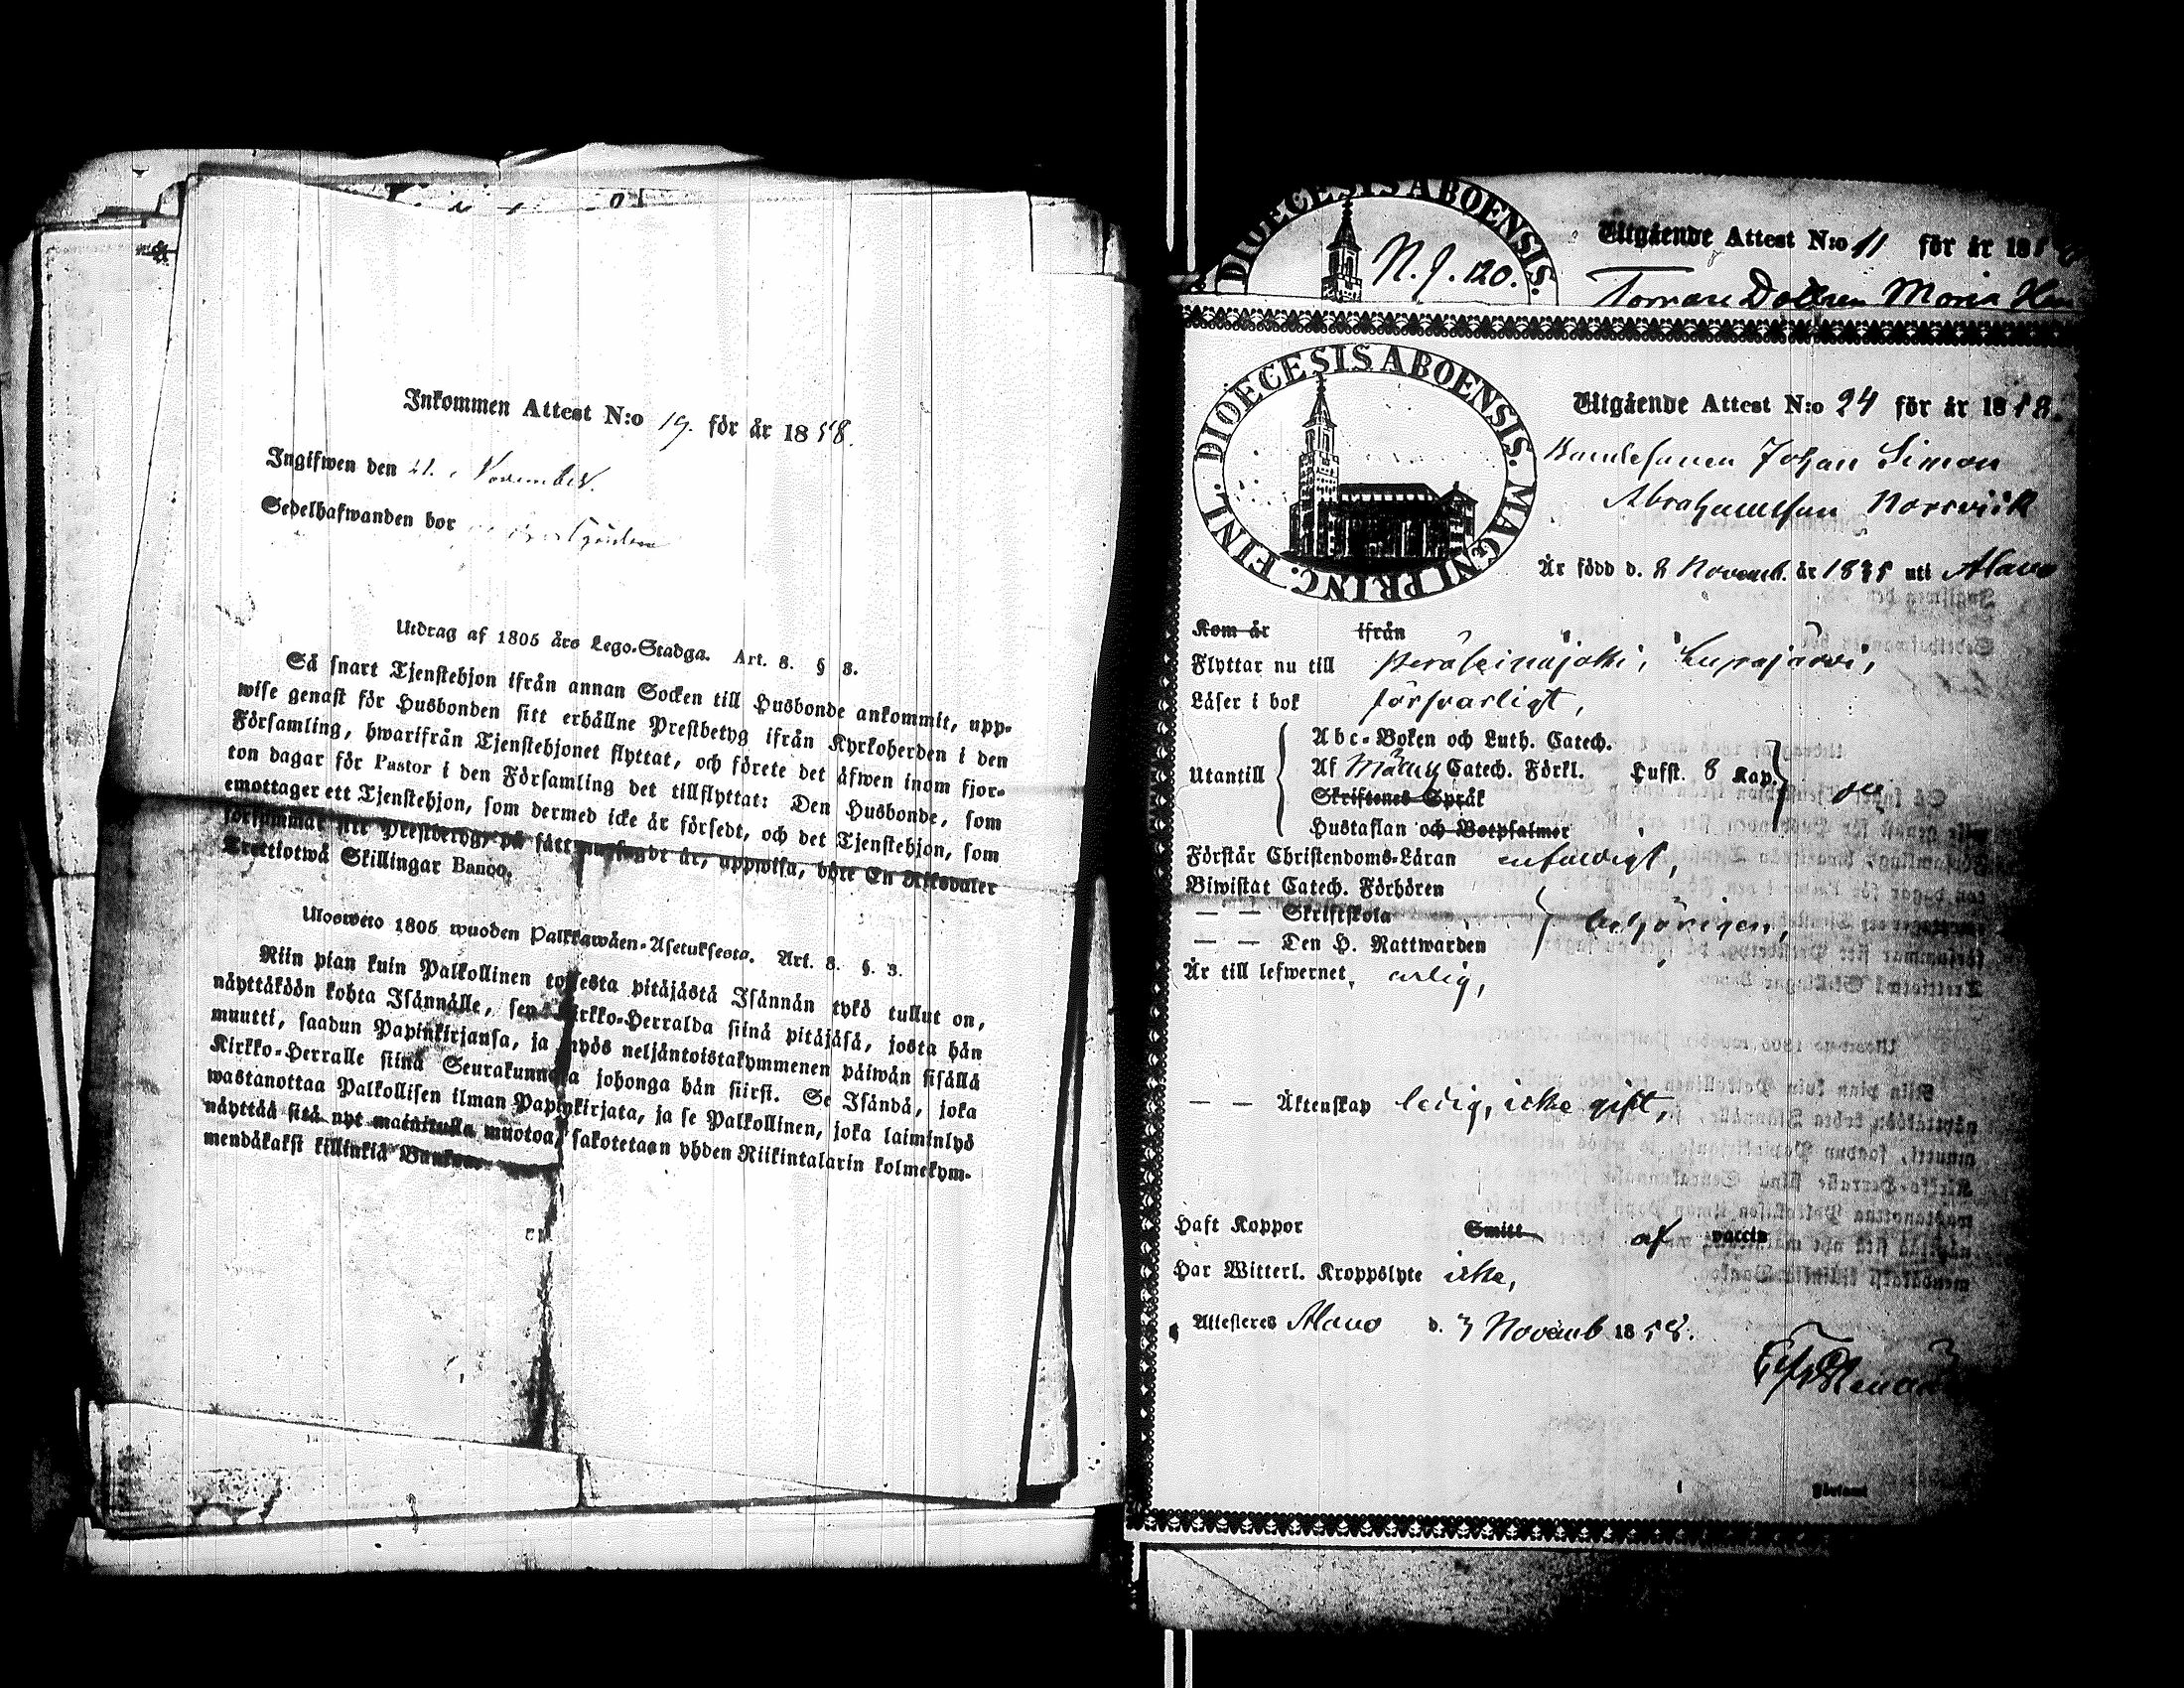 Inkommen Attest N:o 19. för år 1858.
Ingifwen den 21. November.
Sedelhafwanden bor
Utdrag af 1805 års Lego-Stadga. Art. 8. § 3.
Så snart Tjenstehjon ifrån annan Socken till Husbonde ankommit, upp-
wise genast för Husbonden sitt erhållne Prestbetyg ifrån Kyrkoherden i den
Församling, hwarifrån Tjenstehjonet flyttat, och förete det äfwen inom fjor-
ton dagar för Pastor i den Församling det tillflyttat: Den Husbonde, som
emottager ett Tjenstehjon, som dermed icke är försedt, och det Tjenstehjon, som
försummar sitt Prestbetyg, på sätt nu sagdt är, uppwisa, böte En Riksdaler
Trettiotwå Skillingar Banco.
Ulosweto 1805 wuoden Palkkawäen-Asetuksesta. Art. 8. §. 3.
Niin pian kuin Palkollinen toisesta pitäjästä Isännän tykö tullut on,
näyttäköön kohta Isännälle, sen Kirkko-Herralda siinä pitäjäsä, josta hän
muutti, saadun Papinkirjansa, ja myös neljäntoistakymmenen päiwän sisällä
Kirkko-Herralle siinä Seurakunnasa johonga hän siirsi. Se Isändä, joka
wastanottaa Palkollisen ilman Papinkirjata, ja se Palkollinen, joka laiminlyö
näyttää sitä nyt mainitulla muotoa, sakotetaan yhden Riikintalarin kolmekym-
mendäkaksi killinkiä Bankos.
DIOECESIS ABOENSIS.
N. J. 120.
Utgående Attest N:o 11 för år 18
Maria
DIOECESIS ABOENSIS. MAGNI PRINC. FINL.
Utgående Attest N:o 24 för år 1858.
Bondesonen Johan Simon
Abrahamsson Norrviik
Är född d. 2 Novemb. år 1838 uti Alavo
Kom år ifrån
Flyttar nu till Peräseinäjoki, i
Läser i bok försvarligt,
Utantill
Abc-Boken och Luth. Catech.
Af Catech. Förkl. Lufft. 8 Kap.
Skriftenes Språk
Hustaflan och Botpsalmer
Förstår Christendoms-Läran enfaldigt,
Biwistat Catech. Förhören
— — Skriftskola behörigen,
— — Den H. Nattwarden
Är till lefwernet ärlig,
— — Äktenskap ledig, icke gift,
Haft Koppor Smitt af vaccin
Har Witterl. Kroppslyte icke,
Attesteres Alavo d. 3 Novemb 1858.